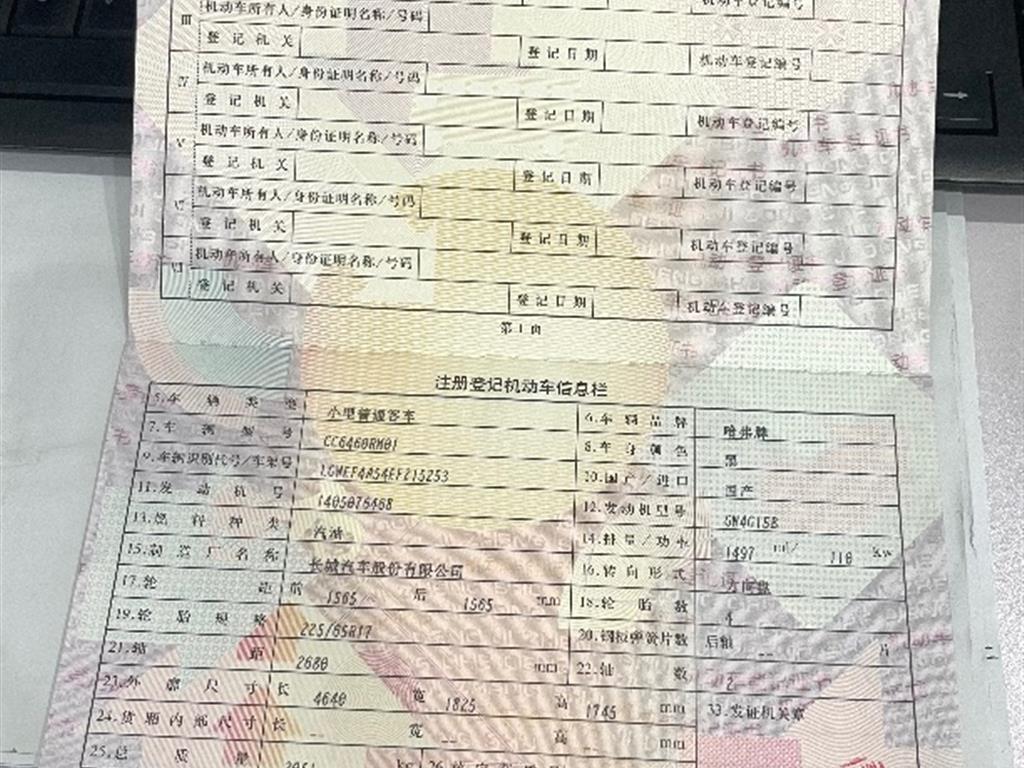 Ⅲ 机动车所有人/身份证明名称/号码
登记机关 登记日期 机动车登记编号
Ⅳ 机动车所有人/身份证明名称/号码
登记机关 登记日期 机动车登记编号
Ⅴ 机动车所有人/身份证明名称/号码
登记机关 登记日期 机动车登记编号
机动车所有人/身份证明名称/号码
登记机关 登记日期 机动车登记编号
机动车所有人/身份证明名称/号码
登记机关 登记日期 机动车登记编号
第1页
注册登记机动车信息栏
5.车辆类型 小型普通客车 6.车辆品牌 哈弗牌
7.车辆型号 CC6460RM01 8.车身颜色 黑
9.车辆识别代号/车架号 LGWEF4A54EF215253 10.国产/进口 国产
11.发动机号 1405076468 12.发动机型号 GW4G15B
13.燃料种类 汽油 14.排量/功率 1497 ml/ 110 kw
15.制造厂名称 长城汽车股份有限公司 16.转向形式 方向盘
17.轮距 前 1565 后 1565 mm 18.轮胎数 4
19.轮胎规格 225/65R17 20.钢板弹簧片数 后轴 -- 片
21.轴距 2680 mm 22.轴数 2
23.外廓尺寸 长 4640 宽 1825 高 1745 mm 33.发证机关章
24.货厢内部尺寸 长 -- 宽 -- 高 -- mm
25.总质量